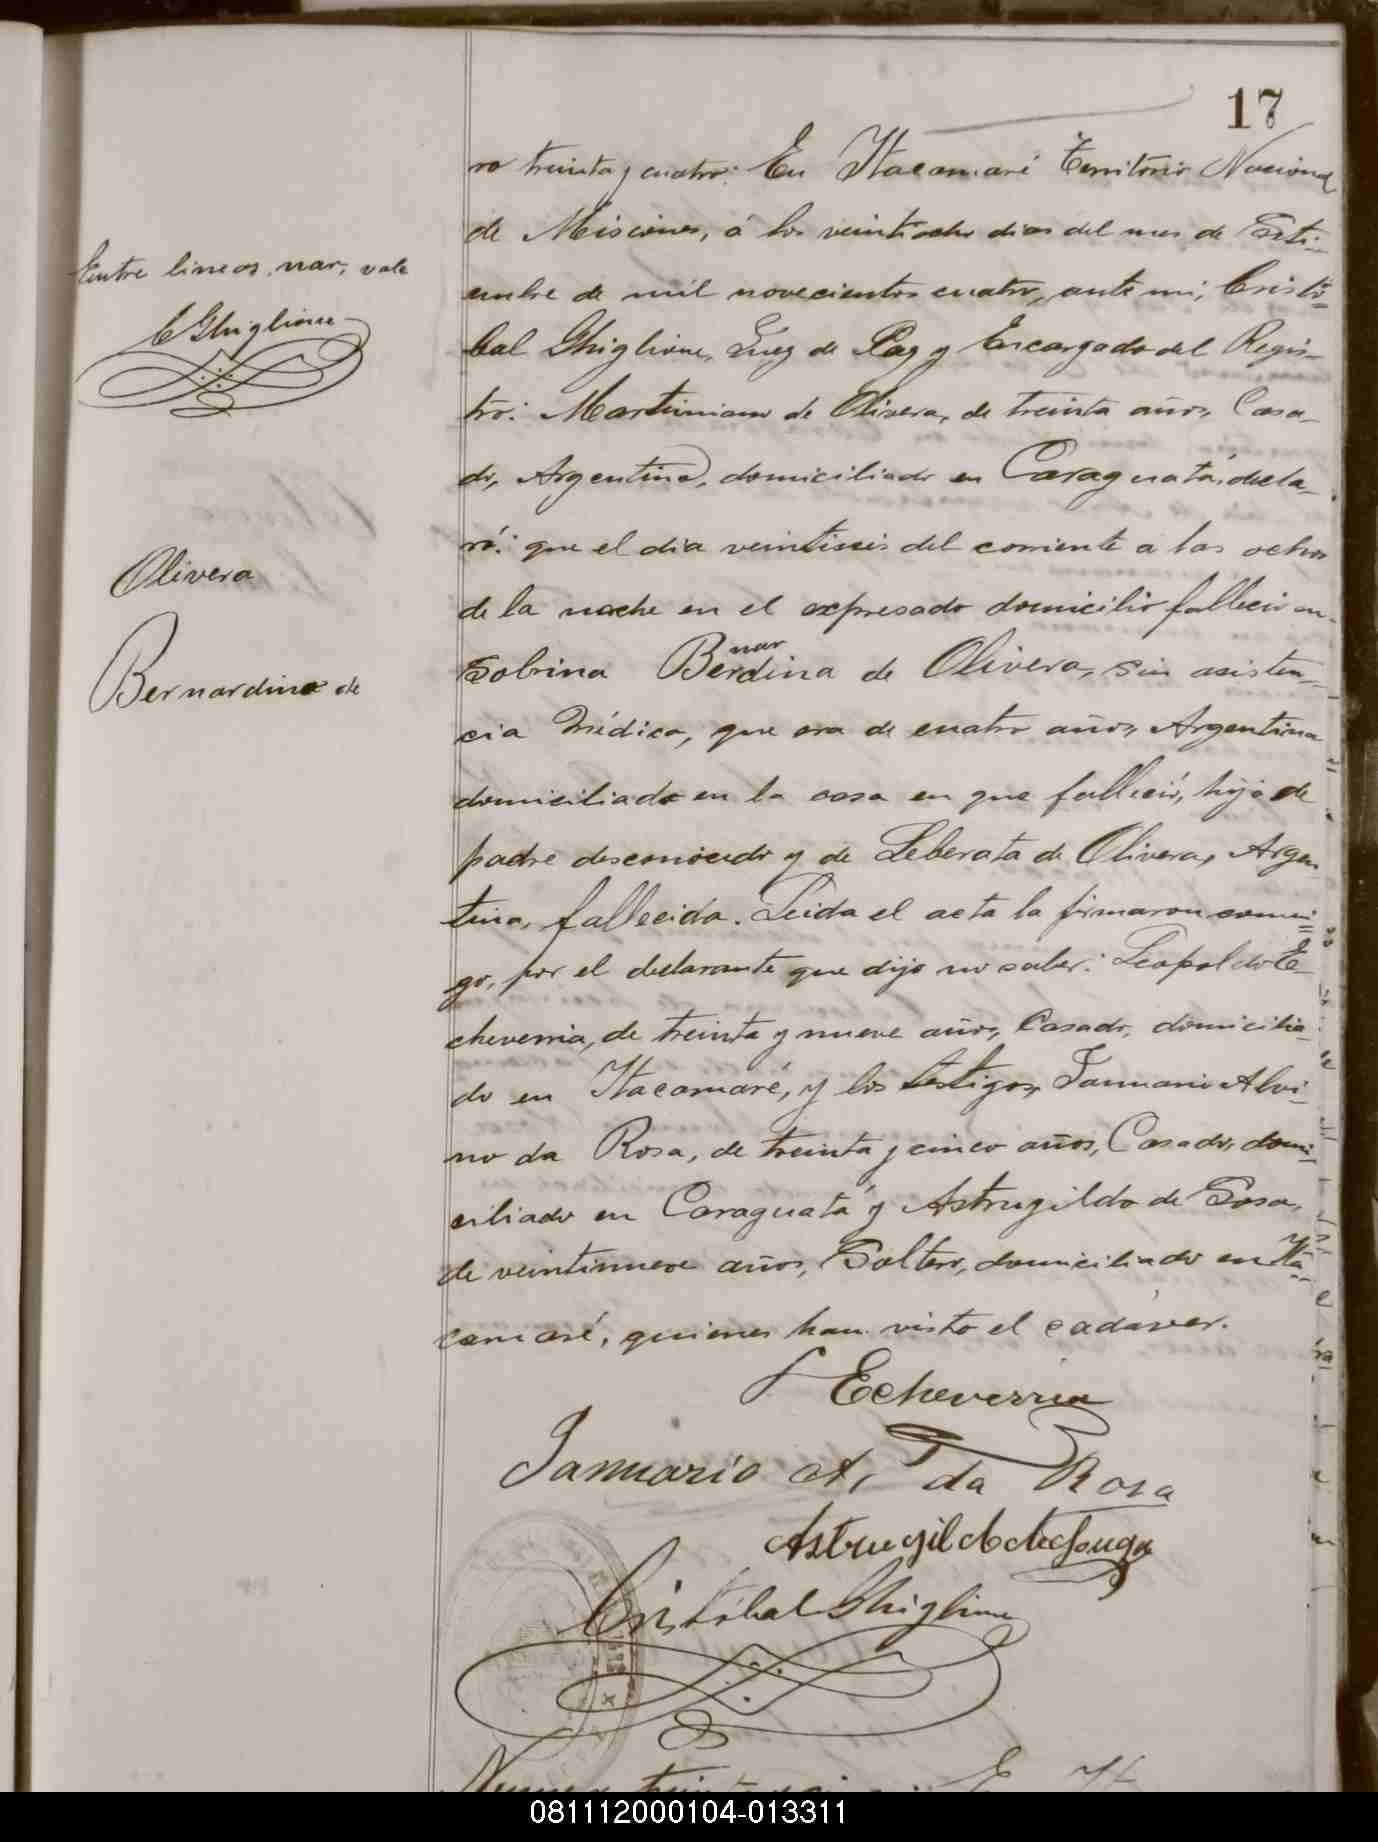 17
ro treinta y cuatro: En Itacamaré Territorio Nacional
de Misiones, á los veintiocho dias del mes de Seti-
embre de mil novecientos cuatro, ante mi, Cristó-
bal Ghiglione, Juez de Paz y Encargado del Regis-
tro: Martiniano de Olivera, de treinta años, Casa-
do, Argentino, domiciliado en Caraguatá, decla-
ró: que el dia veintiseis del corriente á las ocho
de la noche en el expresado domicilio falleció su
Sobrina Berdina de Olivera, sin asisten-
nar
cia Médica, que era de cuatro años, Argentina
domiciliada en la casa en que falleció, hija de
padre desconocido y de Leberata de Olivera, Argen
tina, fallecida. Leida el acta la firmaron conmi-
go, por el declarante que dijo no saber: Leopoldo E-
cheverria, de treinta y nueve años, Casado, domicilia-
do en Itacamaré, y los testigos, Januario Alvi-
no da Rosa, de treinta y cinco años, Casado, domi-
ciliado en Caraguatá y Astrugildo de Sosa,
de veintinueve años, Soltero, domiciliado en Ita-
camaré, quienes han visto el cadáver.
Entre lineas, nar, vale
C Ghiglione
Olivera
Bernardina de
L Echeverria
Januario A, da Rosa
Astrugildo de Souza
Cristóbal Ghiglione
081112000104-013311